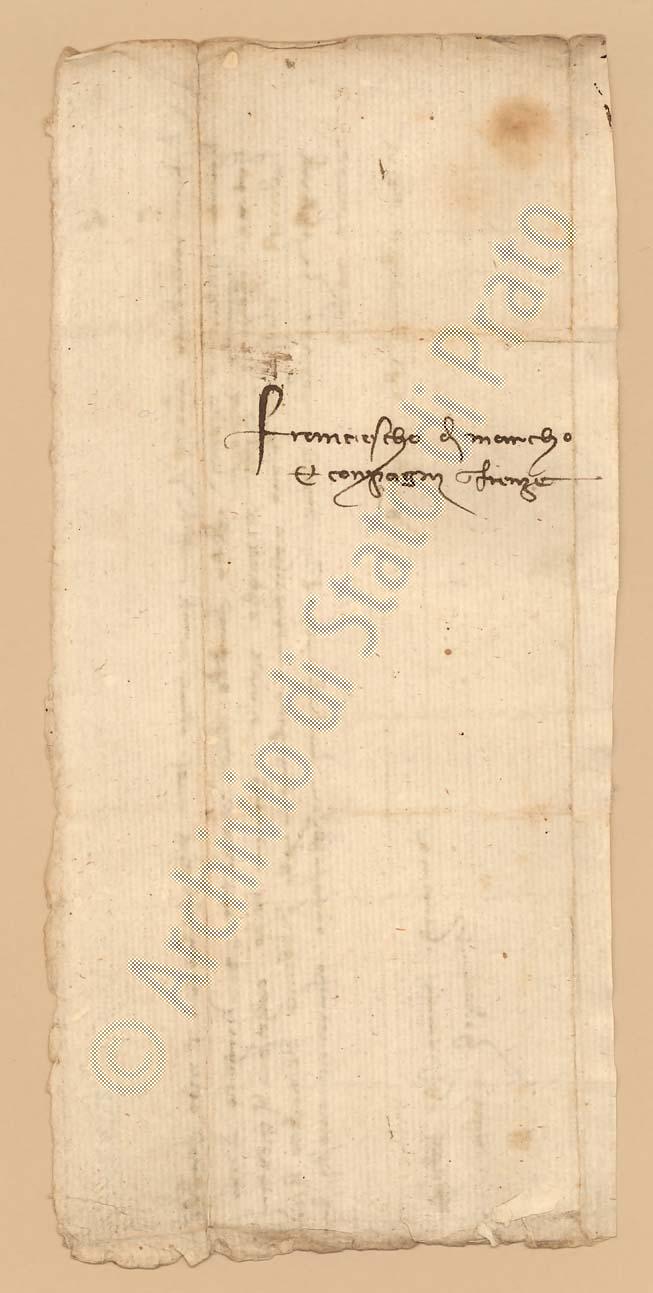 Franciescho di marcho
et conpagni Firenze
© Archivio di Stato di Prato